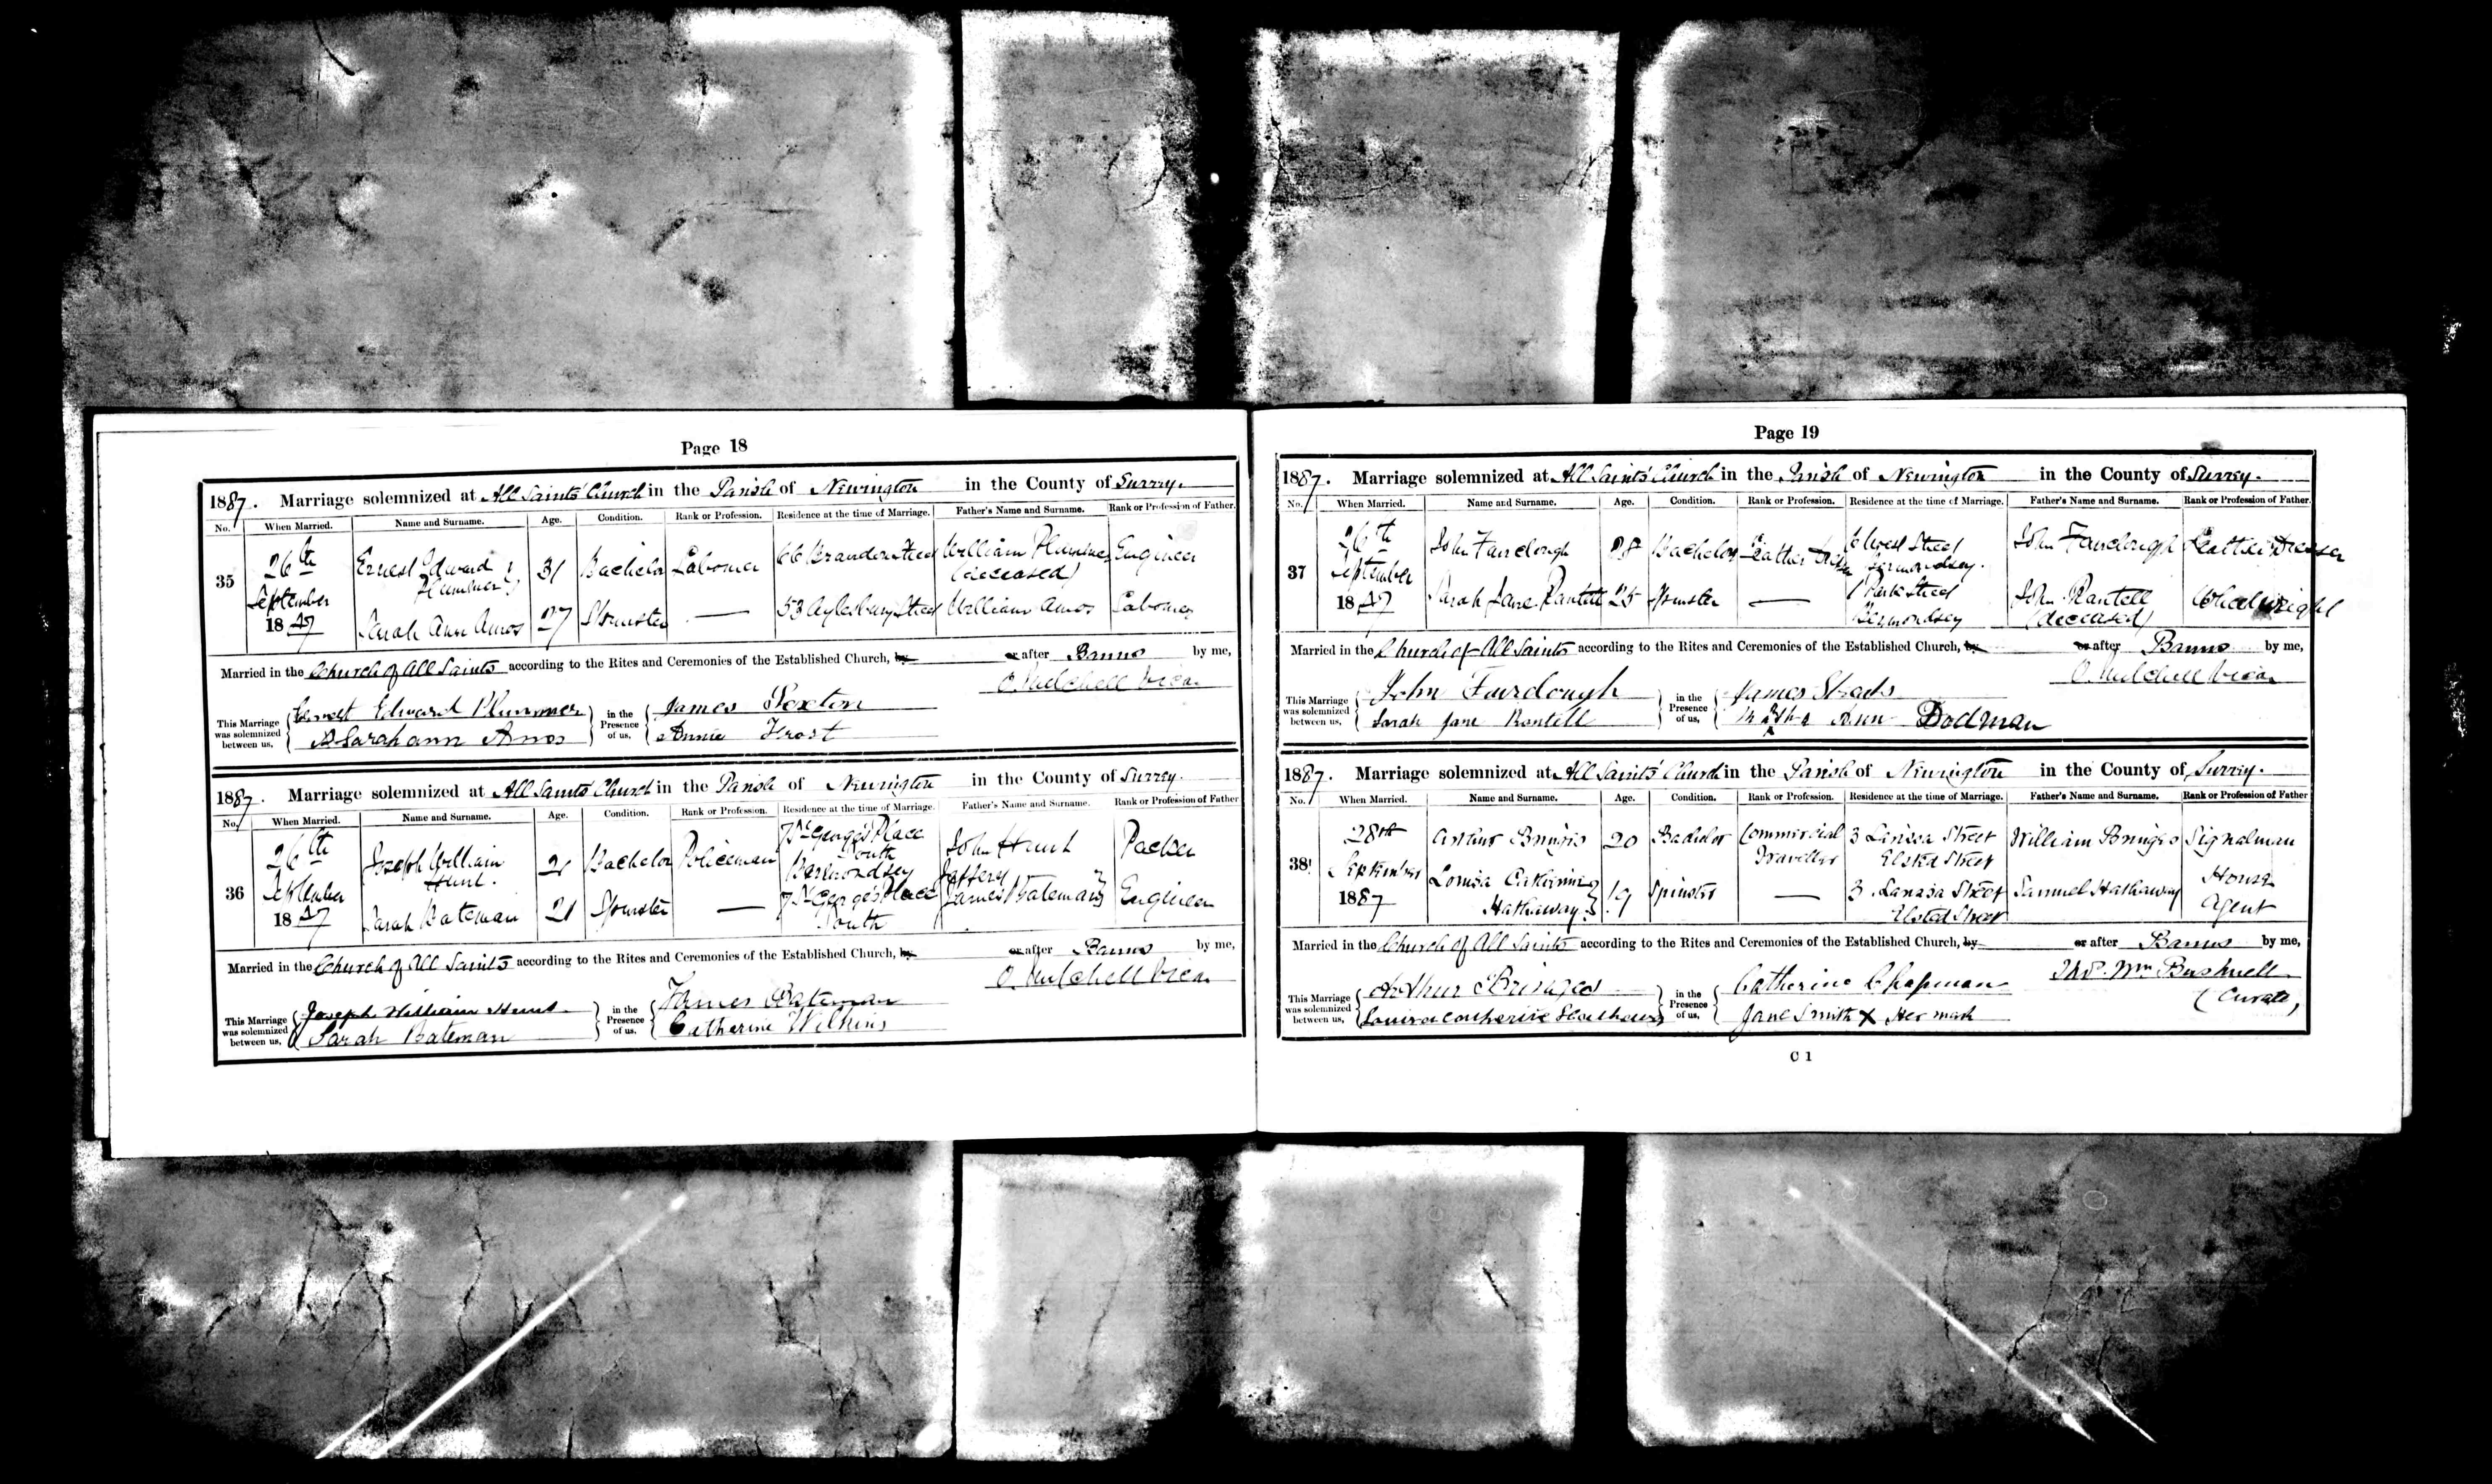 Page 18
1887. Marriage solemnized at All Saints' Church in the Parish of Newington in the County of Surrey.
No. When Married. Name and Surname. Age. Condition. Rank or Profession. Residence at the time of Marriage. Father's Name and Surname. Rank or Profession of Father.
35 26th September 1887 Ernest Edward Plummer 31 Bachelor Labourer 66 Brandon Street William Plummer (deceased) Engineer
Sarah Ann Amos 27 Spinster — 53 Aylesbury Street William Amos Labourer
Married in the Church of All Saints according to the Rites and Ceremonies of the Established Church, by or after Banns by me,
O. Mitchell Vicar
This Marriage was solemnized between us, Ernest Edward Plummer in the Presence of us, James Sexton
Sarah ann Amos Annie Frost
1887. Marriage solemnized at All Saints Church in the Parish of Newington in the County of Surrey.
No. When Married. Name and Surname. Age. Condition. Rank or Profession. Residence at the time of Marriage. Father's Name and Surname. Rank or Profession of Father
36 26th September 1887 Joseph William Hunt. 21 Bachelor Policeman 7 St George's Place South Bermondsey John Hunt Packer
Sarah Bateman 21 Spinster — 7 St George's Place South Jaffery James Bateman Engineer
Married in the Church of All Saints according to the Rites and Ceremonies of the Established Church, by or after Banns by me,
O. Mitchell Vicar
This Marriage was solemnized between us, Joseph William Hunt in the Presence of us, James Bateman
Sarah Bateman Catherine Wilkins
Page 19
1887. Marriage solemnized at All Saints' Church in the Parish of Newington in the County of Surrey.
No. When Married. Name and Surname. Age. Condition. Rank or Profession. Residence at the time of Marriage. Father's Name and Surname. Rank or Profession of Father.
37 26th September 1887 John Fairclough 28 Bachelor Leather Dresser West Street Bermondsey. John Fairclough Leather Dresser
Sarah Jane Rantell 25 Spinster — Park Street Bermondsey John Rantell (deceased) Wheelwright
Married in the Church of All Saints according to the Rites and Ceremonies of the Established Church, by or after Banns by me,
O. Mitchell Vicar
This Marriage was solemnized between us, John Fairclough in the Presence of us, James
Sarah Jane Rantell Martha Ann Dodman
1887. Marriage solemnized at All Saints' Church in the Parish of Newington in the County of Surrey.
No. When Married. Name and Surname. Age. Condition. Rank or Profession. Residence at the time of Marriage. Father's Name and Surname. Rank or Profession of Father
38 28th September 1887 Arthur Bridges 20 Bachelor Commercial Traveller 3 Larissa Street Elsted Street William Bridges Signalman
Louisa Catherine Hathaway 19 Spinster — 3 Larissa Street Elsted Street Samuel Hathaway House Agent
Married in the Church of All Saints according to the Rites and Ceremonies of the Established Church, by or after Banns by me,
Thos. Wm Bushnell (Curate)
This Marriage was solemnized between us, Arthur Bridges in the Presence of us, Catherine Chapman
Louisa Catherine Hathaway Jane Smith X Her mark
C 1